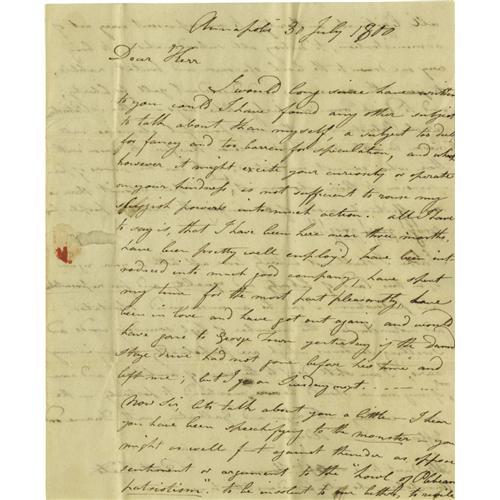 Annapolis 30 July 1810
Dear Kerr
I would long since have written
to you could I have found any other subject
to talk about than myself, a subject too dull
for fancy and too barren for speculation, and which
however it might excite your curiosity or operate
on your kindness, is not sufficient to rouse my
sluggish powers into much action. all I have
to say is, that I have been here near three months,
have been pretty well employd, have been int-
roduced into much good company, have spent
my time for the most part pleasantly, have
been in love and have got out again, and would
have gone to George Town yesterday if the damnd
stage driver had not gone before his time and
left me; but I go on Tuesday next.
Now Sir, lets talk about you a little — I hear
you have been speechifying to the monster — you
might as well f-t against thunder as oppose
sentiment or argument to the "howl of
patriotism". to be insolent to